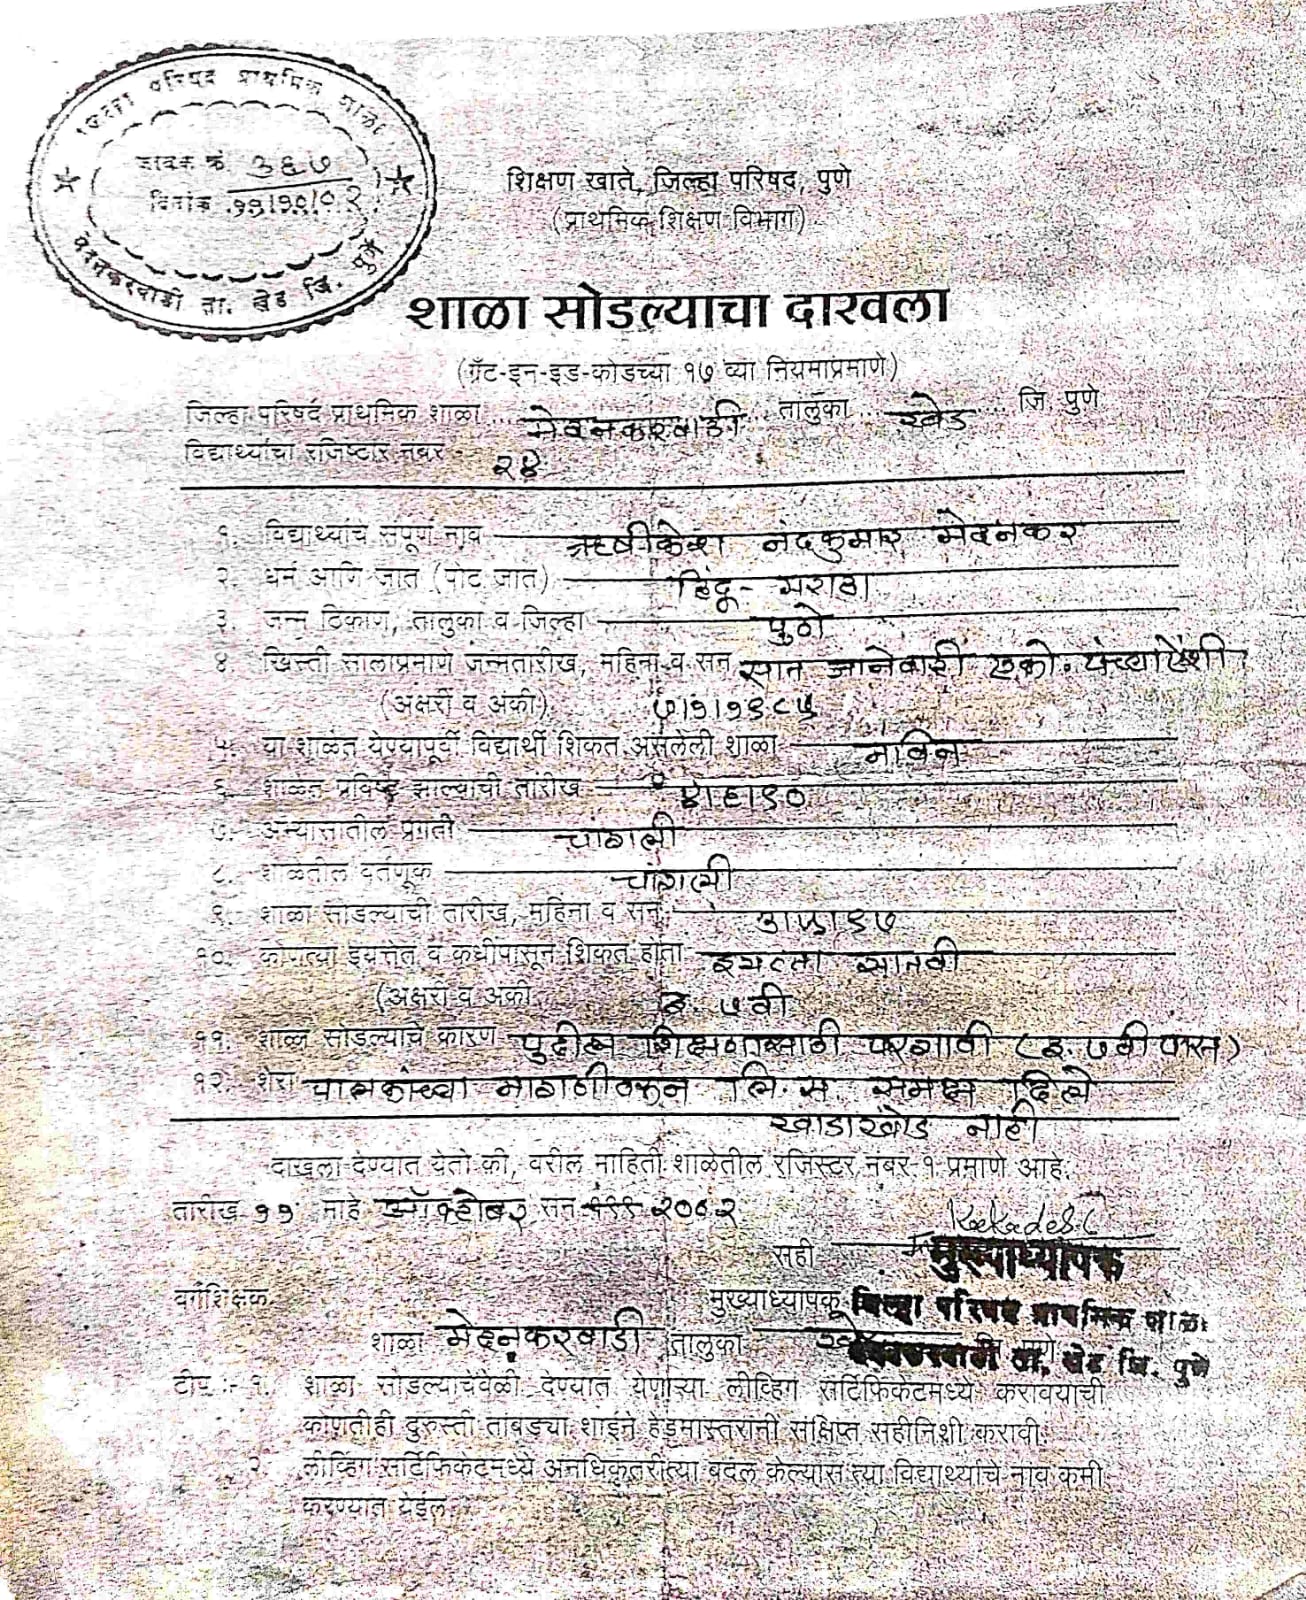 जिल्हा परिषद प्राथमिक शाळा
जावक क्रं. ३६७
दिनांक ११/१०/०२
मेदनकरवाडी ता. खेड जि. पुणे
शिक्षण खाते, जिल्हा परिषद, पुणे
(प्राथमिक शिक्षण विभाग)
शाळा सोडल्याचा दाखला
(ग्रँट-इन-इड-कोडच्या १७ व्या नियमाप्रमाणे)
जिल्हा परिषद प्राथमिक शाळा मेदनकरवाडी तालुका खेड जि. पुणे
विद्यार्थ्यांचा रजिष्टार नंबर २४
१. विद्यार्थ्यांचे संपूर्ण नाव ऋषीकेश नंदकुमार मेदनकर
२. धर्म आणि जात (पोट जात) हिंदू - मराठा
३. जन्म ठिकाण, तालुका व जिल्हा पुणे
४ ख्रिस्ती सालाप्रमाणे जन्मतारीख, महिना व सन सात जानेवारी एको. पंच्याऐंशी
(अक्षरी व अंकी) ७।१।१९८५
५. या शाळेत येण्यापूर्वी विद्यार्थी शिकत असलेली शाळा नविन
६. शाळेत प्रविष्ट झाल्याची तारीख ४।६।९०
७. अभ्यासातील प्रगती चांगली
८. शाळेतील वर्तणूक चांगली
९. शाळा सोडल्याची तारीख, महिना व सन
१०. कोणत्या इयत्तेत व कधीपासून शिकत होता इयत्ता सातवी
(अक्षरी व अंकी इ. ७ वी
११. शाळा सोडल्याचे कारण पुढील शिक्षणासाठी परगावी (इ. ७ वी पास)
१२. शेरा पालकांच्या मागणीवरून लि. स. समक्ष दिले
खाडाखोड नाही
दाखला देण्यात येतो की, वरील माहिती शाळेतील रजिस्टर नंबर-१ प्रमाणे आहे.
तारीख ११ माहे ऑक्टोबर सन २००२
सही Kakade S.C
मुख्याध्यापक
वर्गशिक्षक. मुख्याध्यापक जिल्हा परिषद प्राथमिक शाळा
शाळा मेदनकरवाडी तालुका खेड जि. पुणे
मेदनकरवाडी ता. खेड जि. पुणे
टीप :- १. शाळा सोडल्याचेवेळी देण्यात येणाऱ्या लीव्हिंग सर्टिफिकेटमध्ये करावयाची
कोणतीही दुरुस्ती तांबड्या शाईने हेडमास्तरांनी संक्षिप्त सहीनिशी करावी.
२. लीव्हिंग सर्टिफिकेटमध्ये अनधिकृतरीत्या बदल केल्यास त्या विद्यार्थ्याचे नाव कमी
करण्यात येईल.